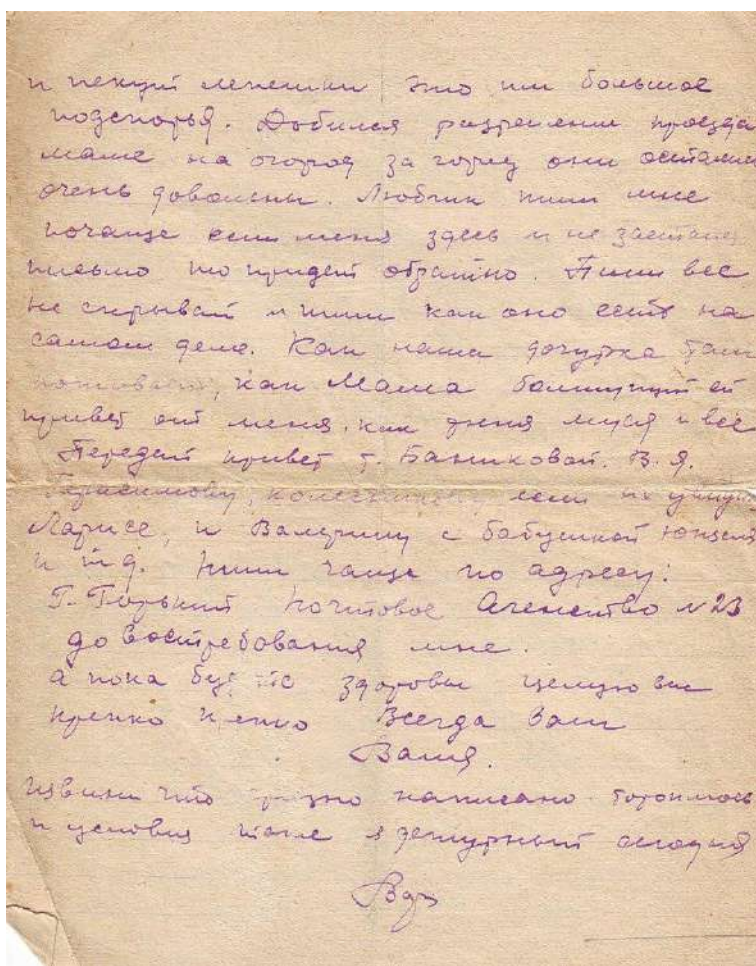 и пекут лепешки это им большое
подспорья. Добился разрешени проезда
маме на огород за город они остались
очень довольны. Любчик пиши мне
почаще если меня здесь и не застанет
письмо то придет обратно. Пиши все
не скрывай и пиши как оно есть на
самом деле. Как наша дочурка там
поживает, как Мама большущий ей
привет от меня. как дядя муся и все
Передай привет т. Баниковой. В. Я.
Герасимову, если их увидишь
Ларисе, и Валерику с бабушкой
и т д. Пиши чаще по адресу:
Г. Горький Почтовое Агенство №23
до востребования мне.
а пока будьте здоровы целую вас
крепко крепко Всегда Ваш
Ваня.
извини что грязно написано торопилось
и условия такие я дежурный сегодня